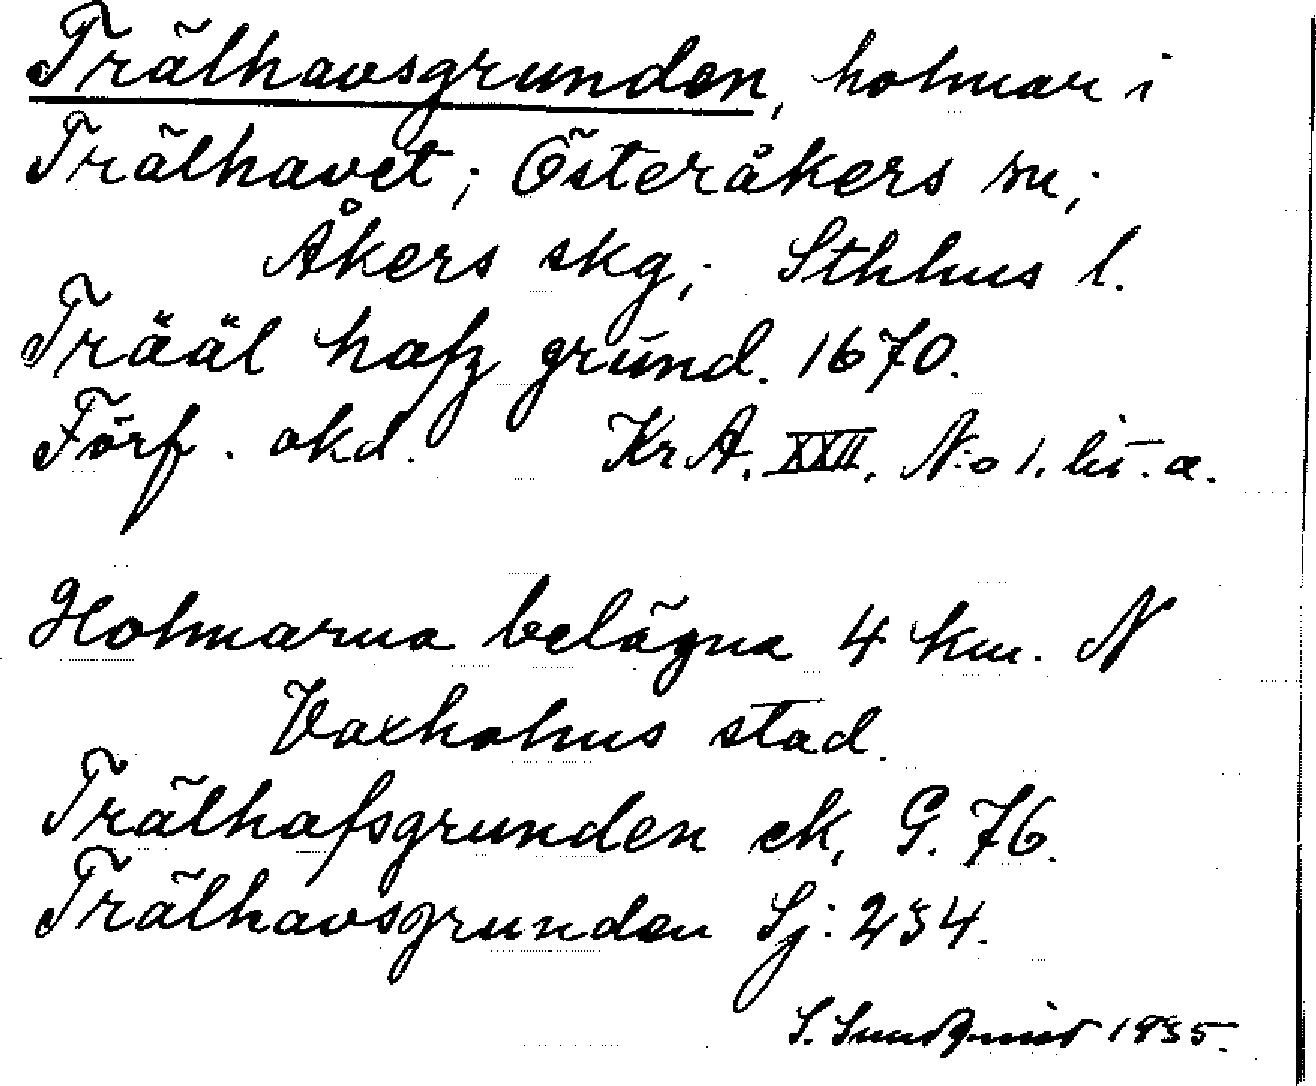 Trälhavsgrunden, holmar i
Trälhavet; Österåkers sn;
Åkers skg; Sthlms l.
Trääl hafz grund. 1670.
Förf. okd. KrA. XXII. N:o 1. lit. a.
Holmarna belägna 4 km. N
Vaxholms stad.
Trälhafsgrunden ek. G. 76.
Trälhavsgrunden Sj: 234.
S. Sundqvist 1935.